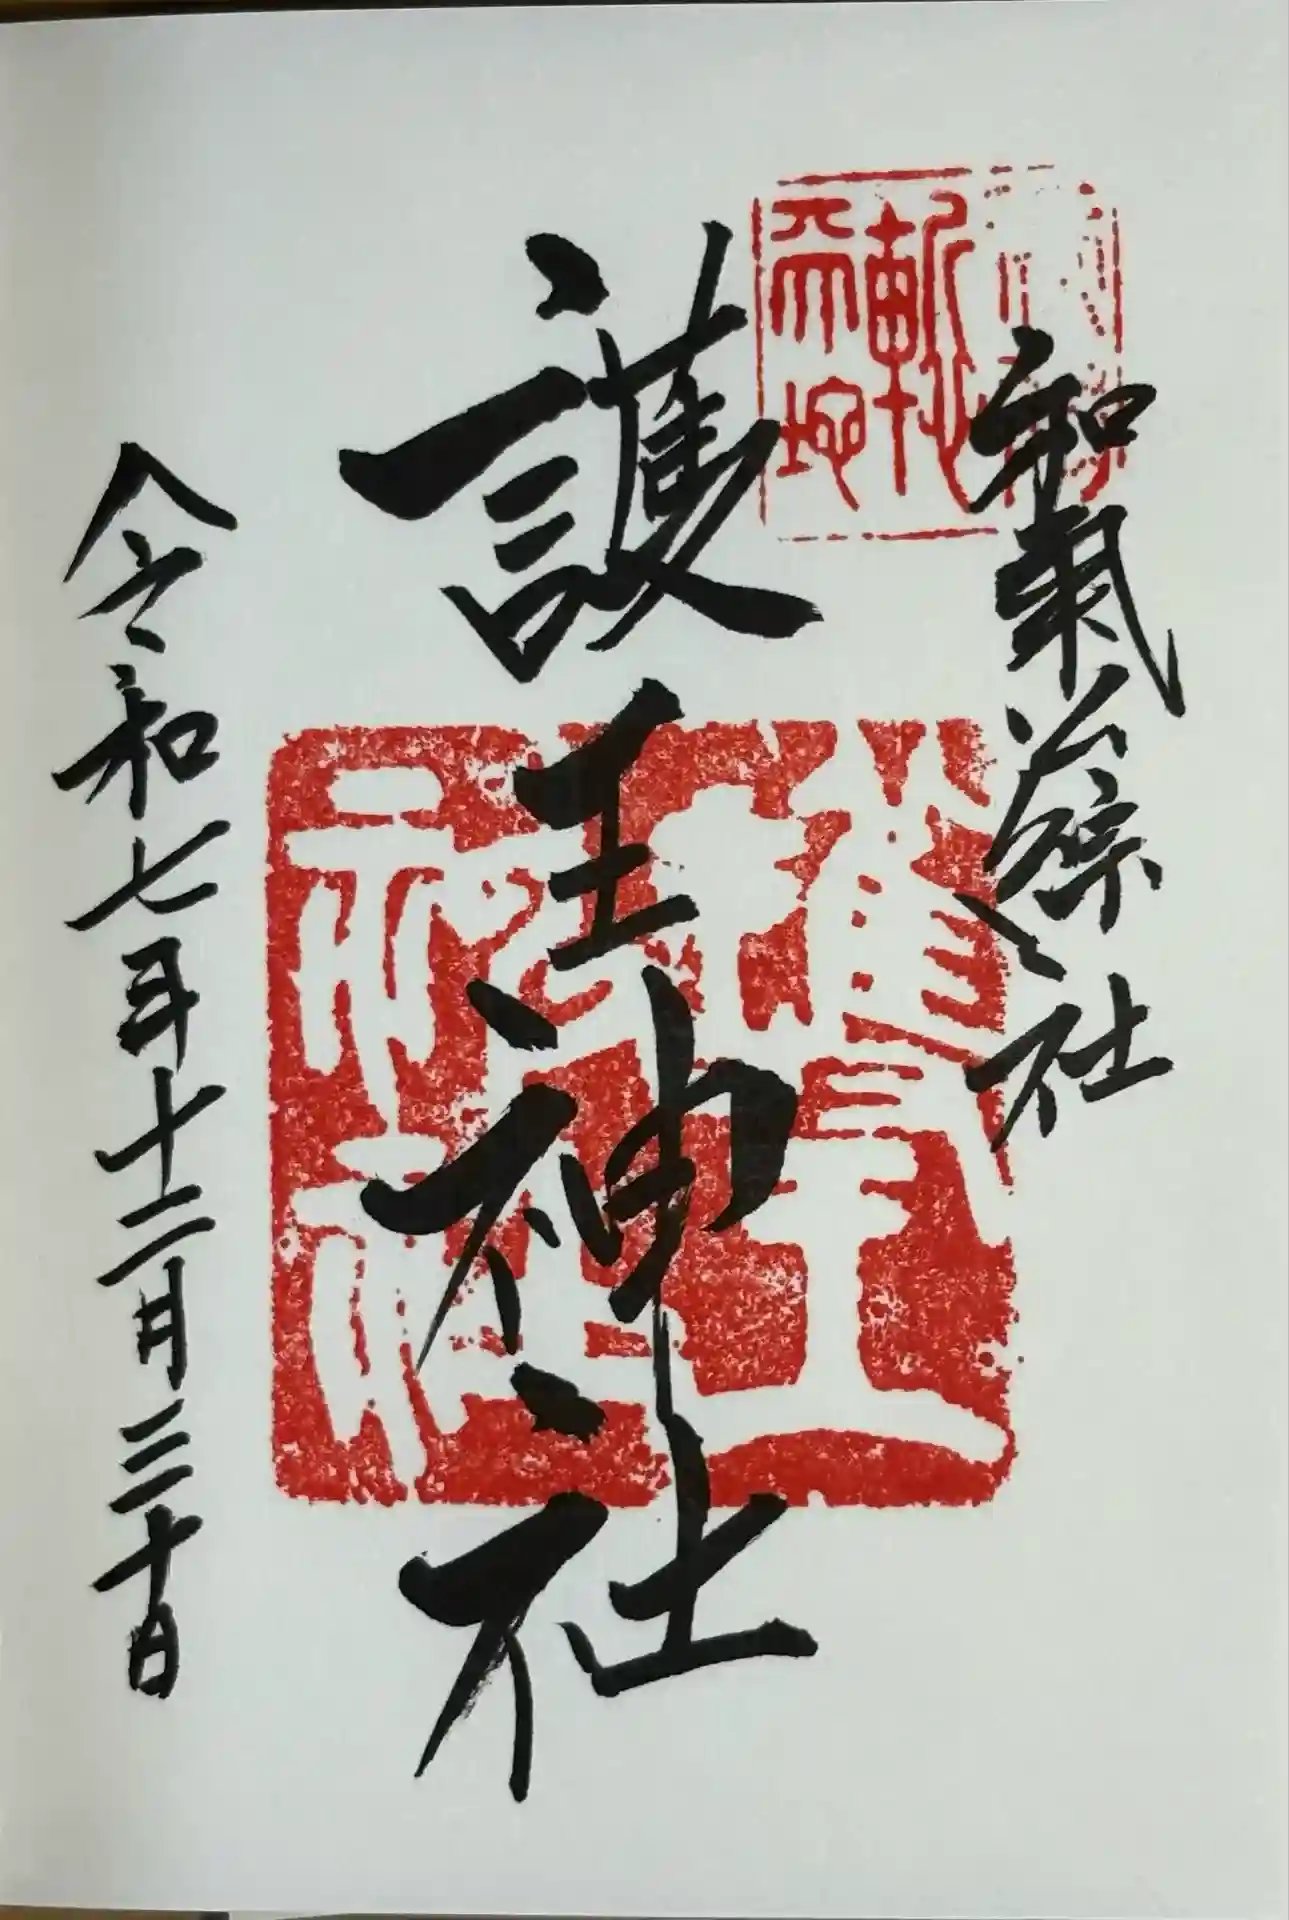 和氣公社
護王神社
護王
神社
令和七年十二月三十日